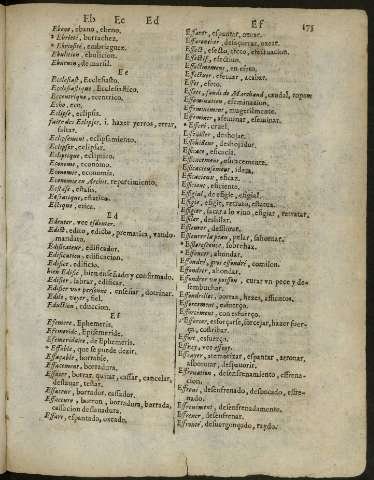 Eb Ec Ed
Ebene, ebano, ebeno.
* Ebrieté, borrachez.
* Ebriosité, embriaguez.
Ebulition, ebulicion.
Eburnin, de marfil.
Ec
Ecclesiast, Ecclesiasto.
Ecclesiastique, Ecclesiastico.
Eccentrique, eccentrico.
Echo, eco.
Eclipse, eclipsa.
faire des Eclipses, i. hazer yerros, errar,
faltar.
Eclipsement, eclipsamiento.
Eclipser, eclipsar.
Ecliptique, ecliptico.
Econome, economo.
Economie, economia.
Economie en Archit. repartimiento.
Ecstase, estasis.
Ecstatique, estatico.
Ectique, etico.
Ed
Edenter, voe esdenter.
Edict, edito, edicto, prematica, vando,
mandato.
Edificateur, edificador.
Edification, edificacion.
Edifice, edificio.
bien Edifié, bien enseñado y confirmado.
Edifier, labrar, edificar.
Edifier une personne, enseñar, dotrinar.
Edile, veyer, fiel.
Eduction, educcion.
Ef
Efemere, Ephemeris.
Efemeride, Ephemeride.
Efemeridaire, de Ephemeris.
* Effable, que se puede dezir.
Effaçable, borrable.
Effacement, borradura.
Effacer, borrar, quitar, cassar, cancelar,
deslauar, testar.
Effaceur, borrador, cassador.
Effaceure, borron, borradura, borrada,
cassacion deslauadura.
Effaré, espantado, oxeado.
Ef 175
Effarer, espantar, oxear.
Effaroucher, desaguerrar, oxear.
Effect, efecto, efeto, efectuacion.
Effectif, efectiuo.
Effectivement, en efeto.
Effectuer, efetuar, acabar.
Effet, efeto.
Effets, fonds de Marchand, caudal, topam
Effemination, efeminacion.
Effeminement, mugerilmente.
Effeminer, afeminar, efeminar.
* Efferé, cruel.
Effeuiller, deshojar.
Effeuilleur, deshojador.
Efficace, eficacia.
Efficacement, eficacemente.
Efficacieusement, idem.
Efficacieux, eficaz.
Efficient, eficiente.
Effigial, de efigie, efigial.
Effigie, efigie, retrato, estatua.
Effigier, sacar a lo vino, efigiar, retratar.
Effiler, deshilar.
Effleurer, desflorar.
Effleurer la peau, pelar, sahornar.
* Effloressence, sobrehaz.
* Effoncer, ahondar.
Effondré, gros effondré, comilon.
Effondrer, ahondar.
Effondrer un poisson, curar un pece y de-
sembuchar.
Effondrilles, borras, hezes, assientos.
Efforcement, esfuerço.
Efforcément, con esfuerço.
s'Efforcer, esforçarse, forcejar, hazer fuer-
ça, costribar.
Effort, esfuerço.
Effray, voe effroy.
Effrayer, atemorizar, espantar, atronar,
alborotar, despauorir.
Effrenation, desenfrenamiento, effrena-
cion.
Effrené, desenfrenado, desbocado, effre-
nado.
Effrenément, desenfrenadamento.
Effrener, desenfrenar.
Effronté, desuergonçado, raydo.